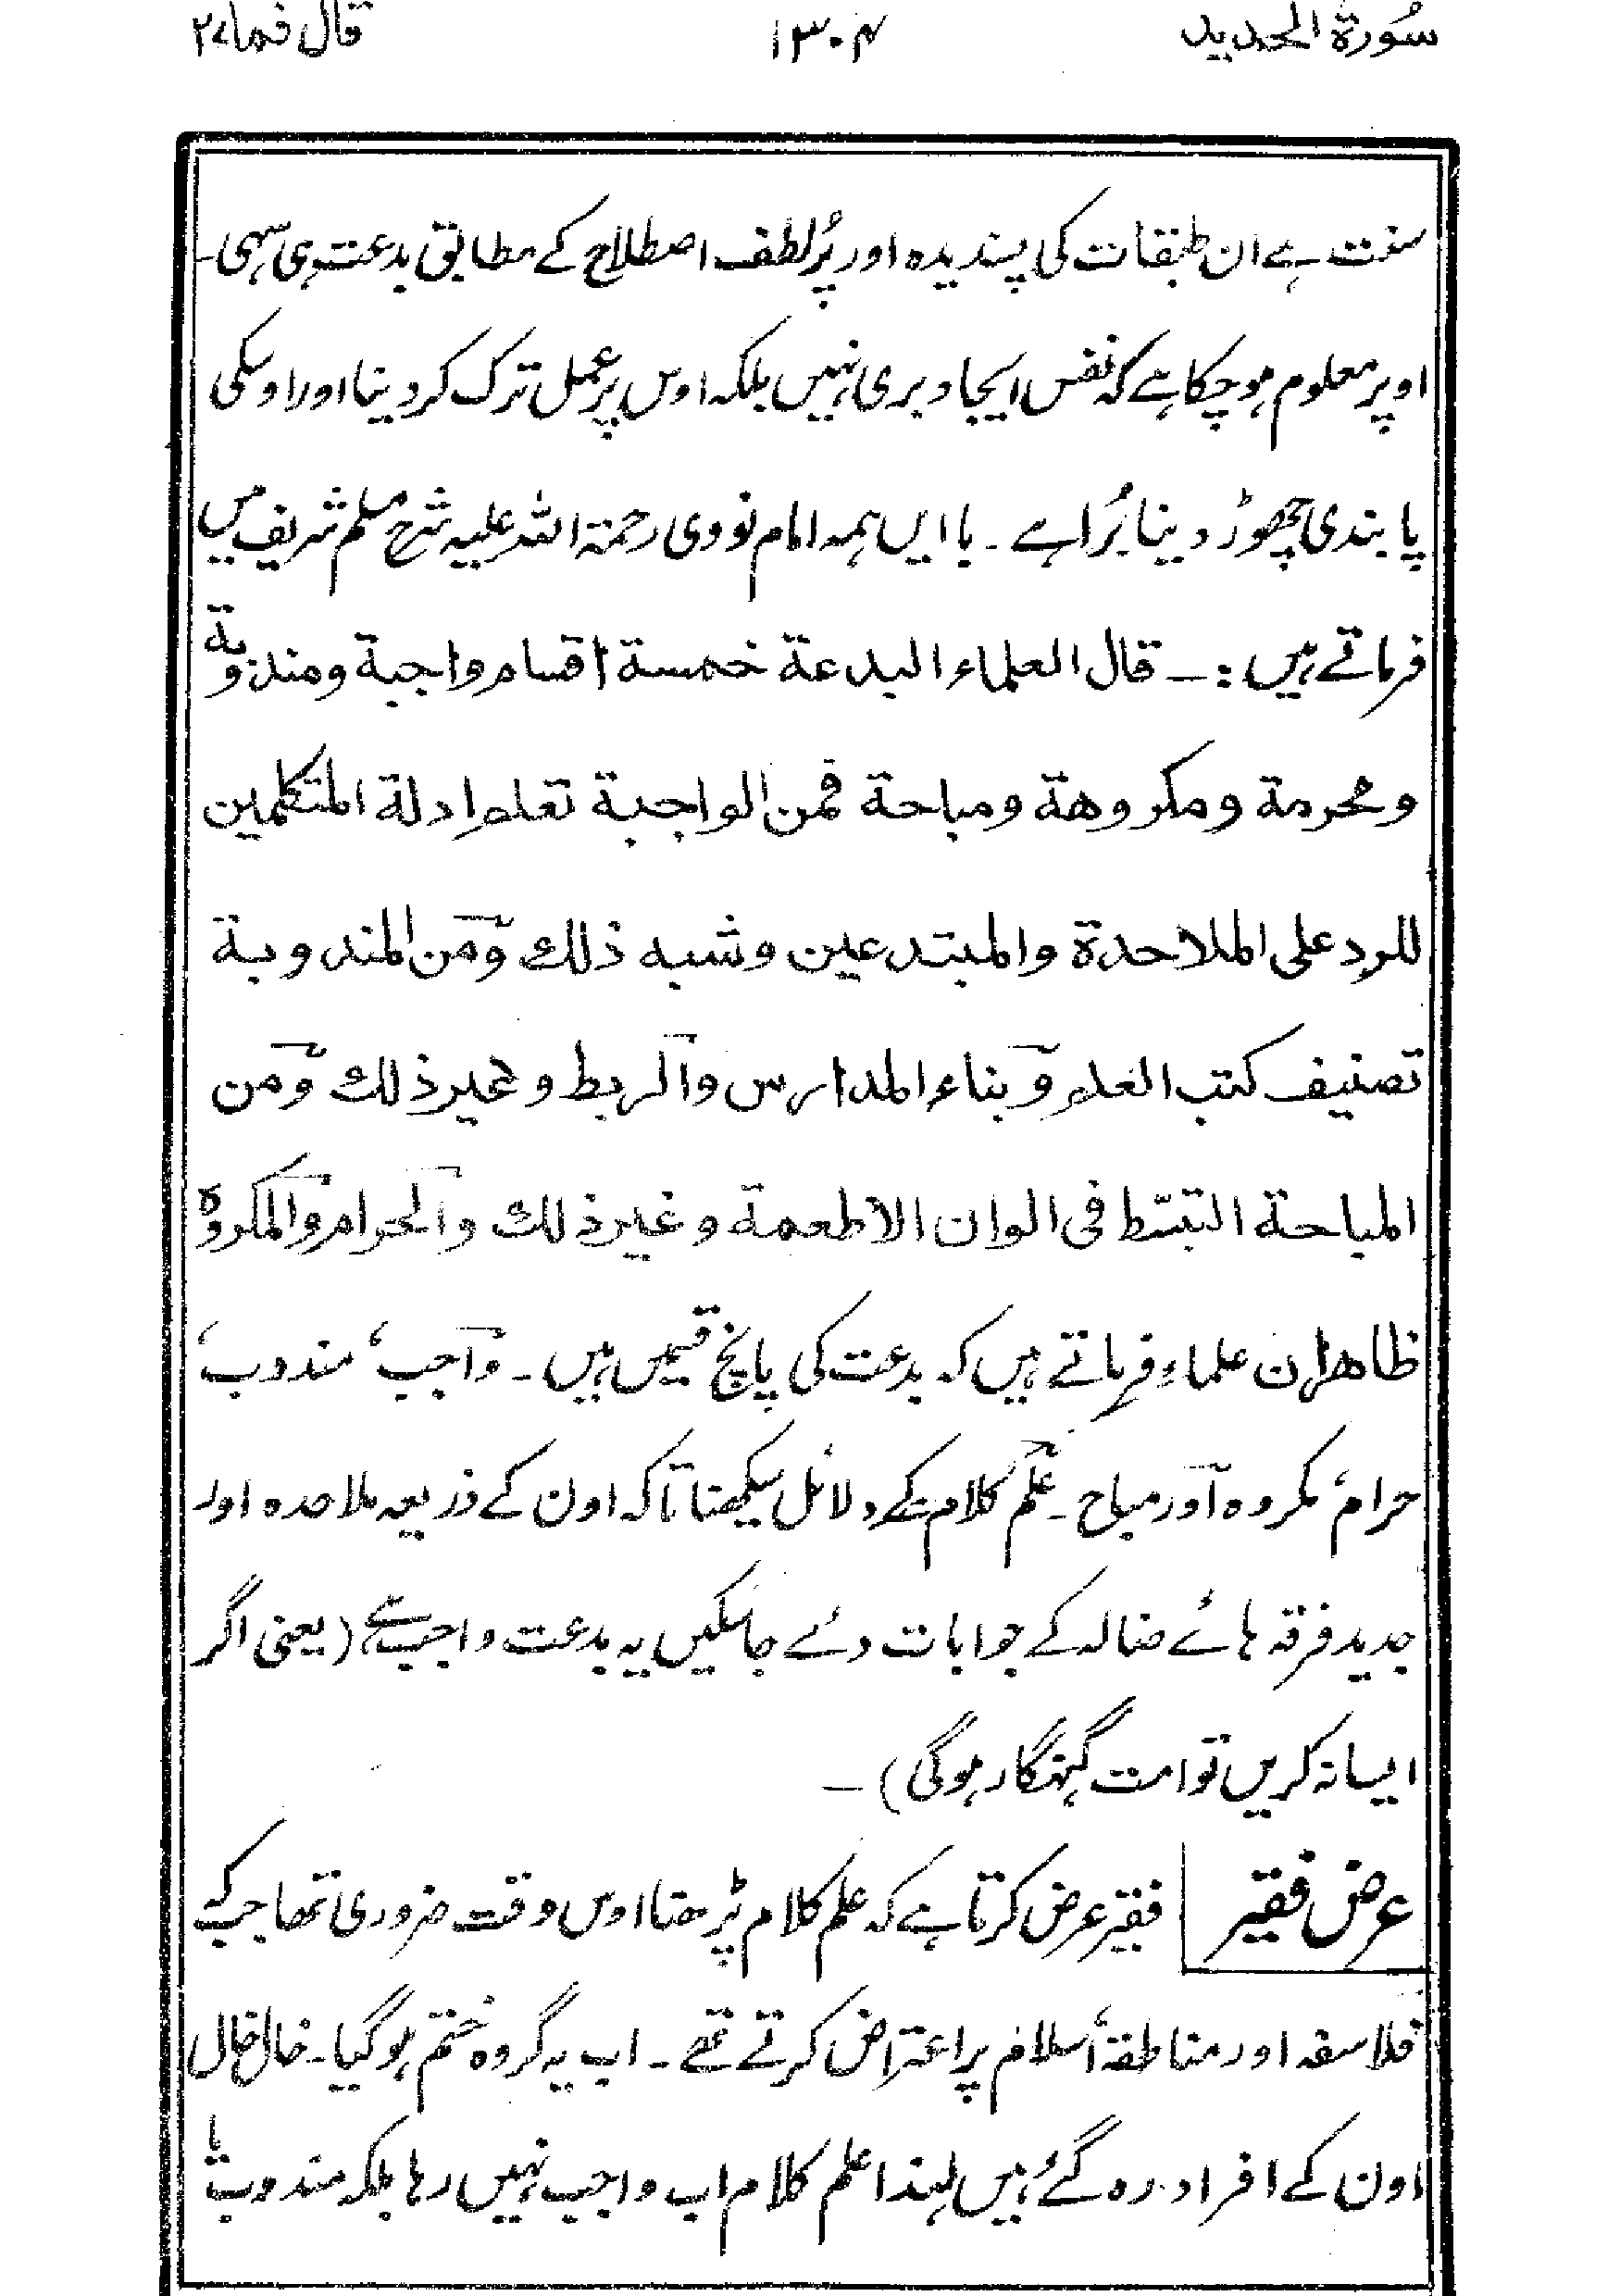 سُورة الحديد ۱۳۰۴ قال فما ۲۷
سنت ہے ان طبقات کی پسندیدہ اور پُرلطف اصطلاح کے مطابق بدعت ہی سہی۔
اوپر معلوم ہوچکا ہے کہ نفس ایجاد بری نہیں بلکہ اوس پر عمل ترک کردینا اور اوسکی
پابندی چھوڑ دینا بُرا ہے ۔ باایں ہمہ امام نووی رحمۃ اللہ علیہ شرح مسلم شریف میں
فرماتے ہیں :۔ قال العلماء البدعة خمسة اقسام واجبة ومندوبة
ومحرمة ومكروهة ومباحة فمن الواجبة تعلم ادلة المتكلمين
للرد على الملاحدة والمبتدعين وشبه ذلك ومن المندوبة
تصنيف كتب العلم وبناء المدارس والربط وغير ذلك ومن
المباحة التبسّط فى الوان الاطعمة وغير ذلك والحرام والمكروه
ظاهران علماء فرماتے ہیں کہ بدعت کی پانچ قسمیں ہیں ۔ واجب، مندوب،
حرام، مکروہ اور مباح ۔ علم کلام کے دلائل سیکھنا تاکہ اون کے ذریعہ ملاحدہ اور
جدید فرقہ ہائے ضالہ کے جوابات دئے جاسکیں یہ بدعت واجب ہے (یعنی اگر
ایسا نہ کریں تو امت گنہگار ہوگی) ۔
عرض فقیر فقیر عرض کرتا ہے کہ علم کلام پڑھنا اوس وقت ضروری تھا جب کہ
فلاسفہ اور مناطقۂ اسلام پر اعتراض کرتے تھے ۔ اب یہ گروہ ختم ہوگیا۔ خال خال
اون کے افراد رہ گئے ہیں لہذا علم کلام اب واجب نہیں رہا بلکہ مندوب یا